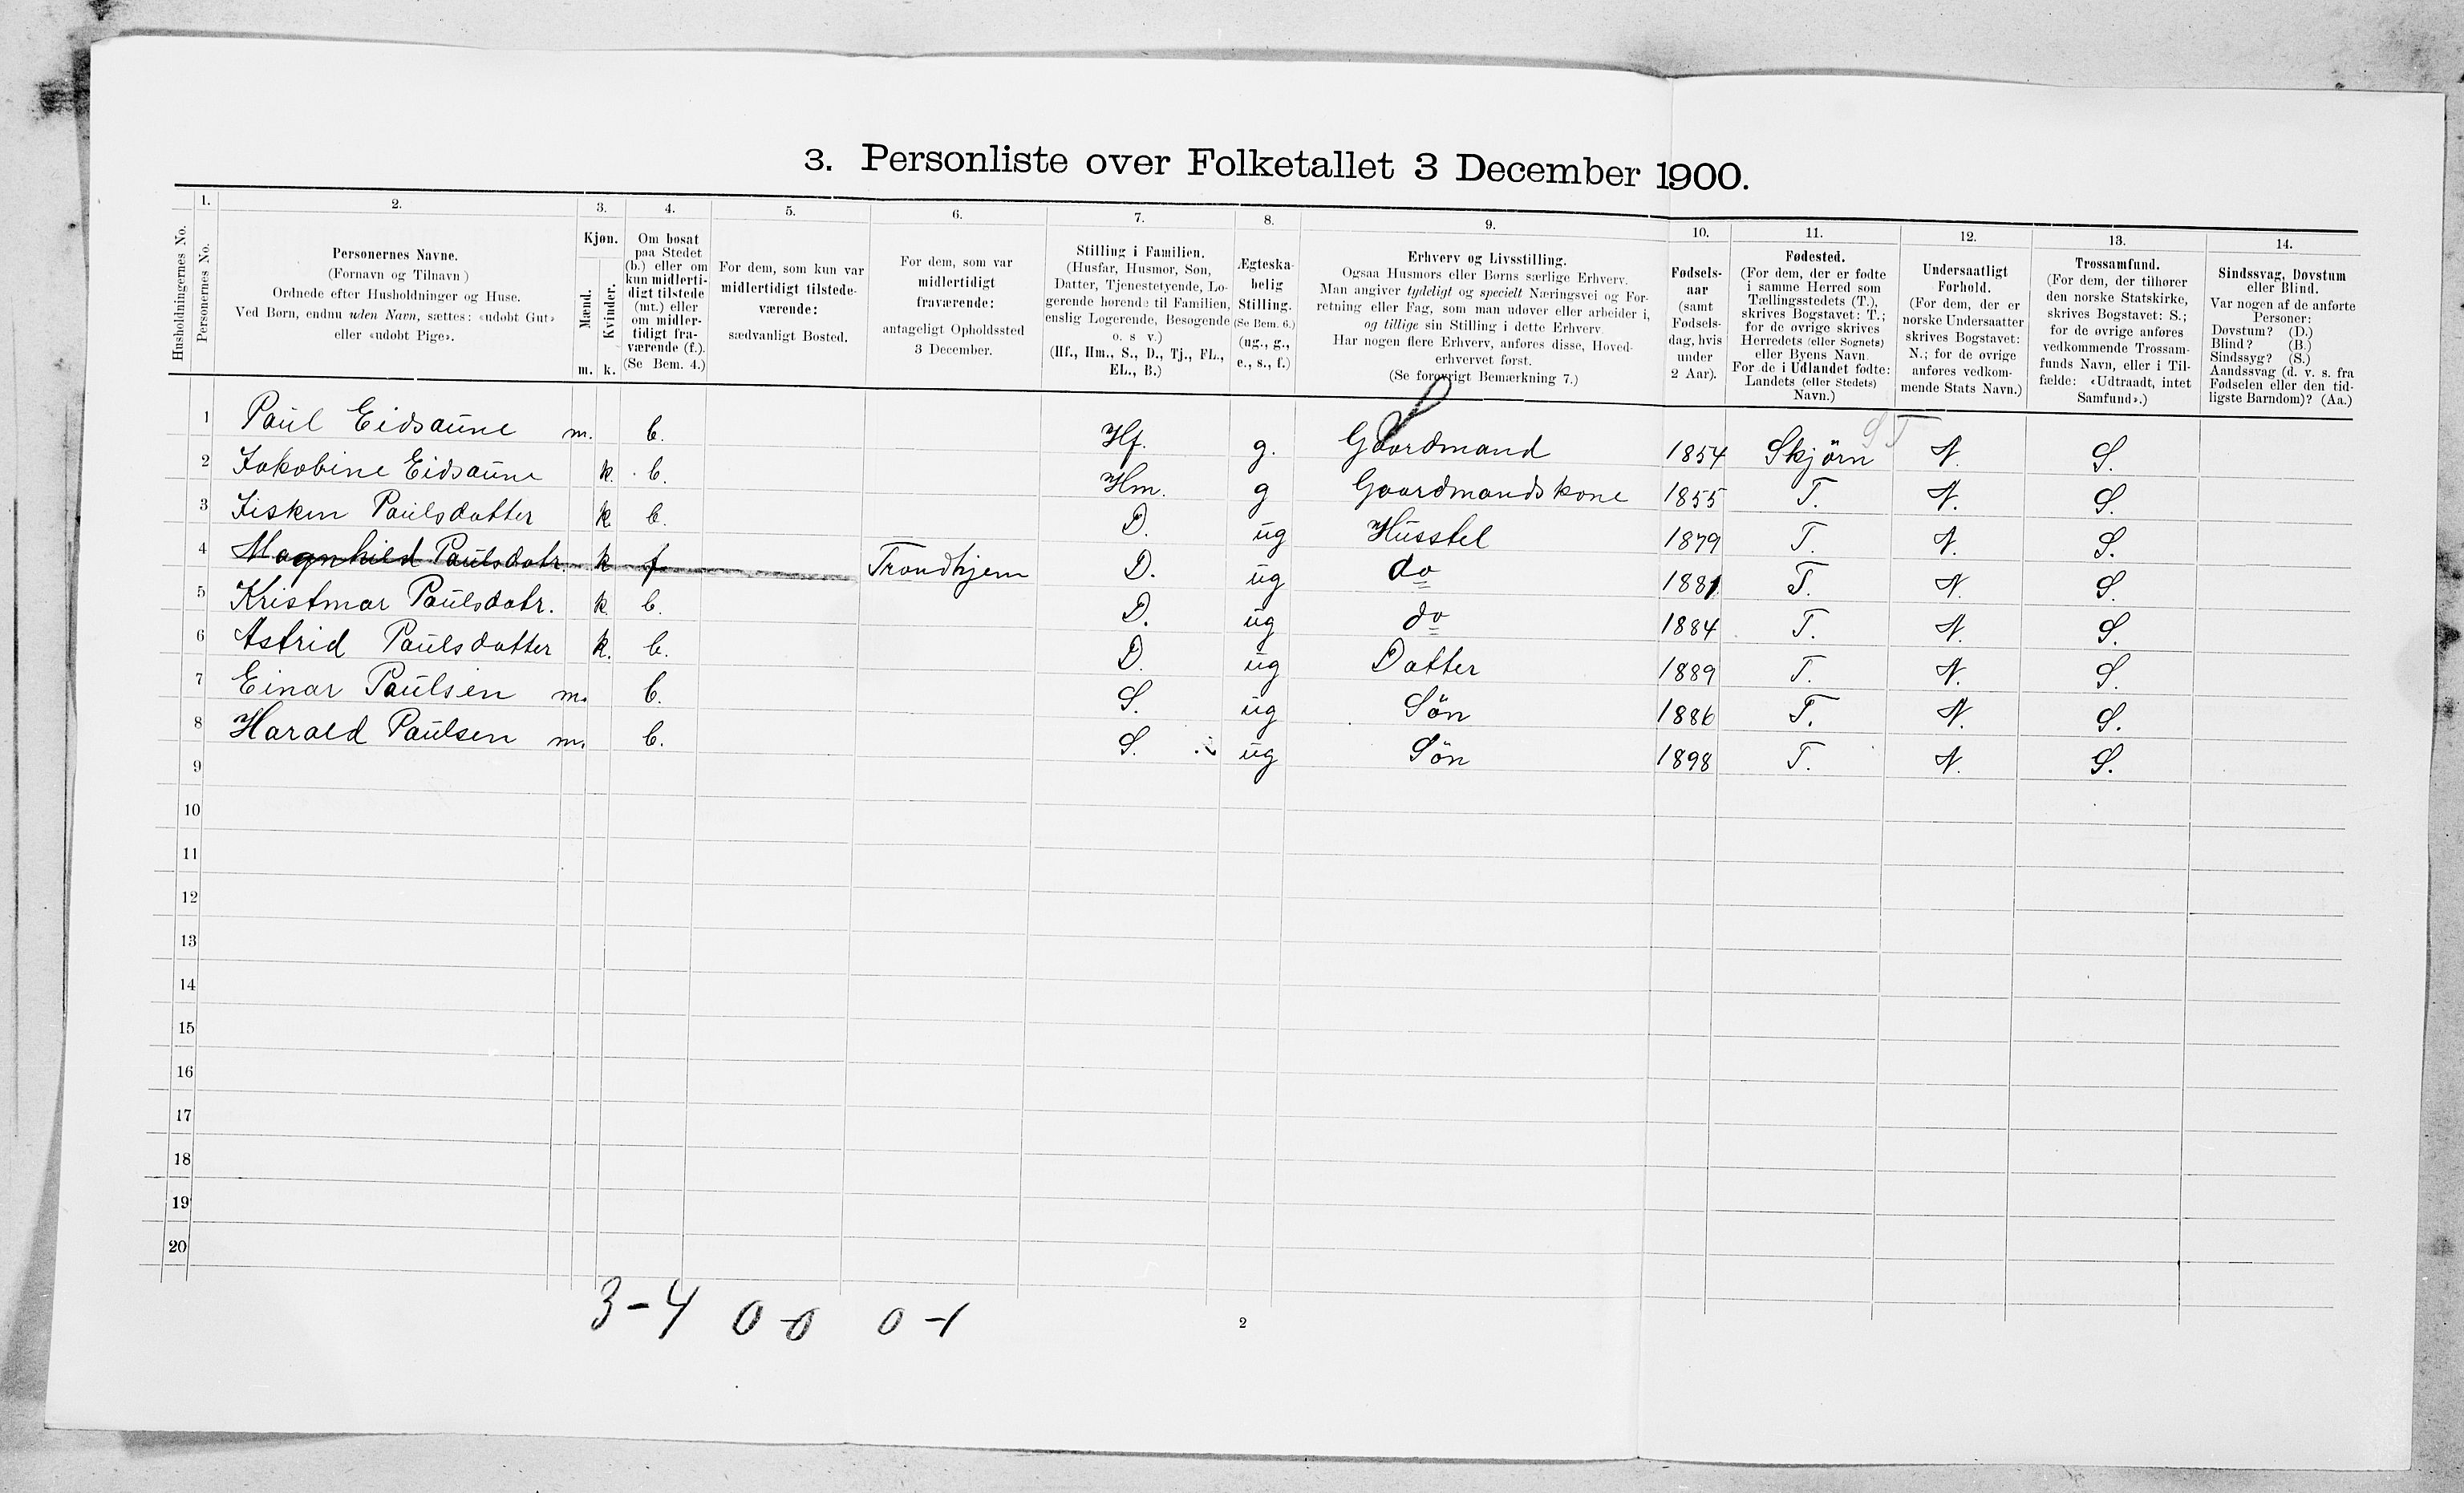 3. Personliste over Folketallet 3 December 1900.
1. 2. 3. 4. 5. 6. 7. 8. 9. 10. 11. 12. 13. 14.
Husholdningernes No.
Personernes No.
Personernes Navne.
(Fornavn og Tilnavn)
Ordnede efter Husholdninger og Huse.
Ved Børn, endnu uden Navn, sættes: «udøbt Gut»
eller «udøbt Pige».
Kjøn.
Mænd.
Kvinder.
m. k.
Om bosat
paa Stedet
(b.) eller om
kun midlerti-
digt tilstede
(mt.) eller
om midler-
tidigt fra-
værende (f.).
(Se Bem. 4.)
For dem, som kun var
midlertidigt tilstede-
værende:
sædvanligt Bosted.
For dem, som var
midlertidigt
fraværende:
antageligt Opholdssted
3 December.
Stilling i Familien.
(Husfar, Husmor, Søn,
Datter, Tjenestetyende, Lo-
gerende hørende til Familien,
enslig Logerende, Besøgende
o. s v.)
(Hf., Hm., S., D., Tj., FL.,
EL., B.)
Ægteska-
belig
Stilling.
(Se Bem. 6.)
(ug., g.,
e., s., f.)
Erhverv og Livsstilling.
Ogsaa Husmors eller Børns særlige Erhverv.
Man angiver tydeligt og specielt Næringsvei og For-
retning eller Fag, som man udøver eller arbeider i,
og tillige sin Stilling i dette Erhverv.
Har nogen flere Erhverv, anføres disse, Hoved-
erhvervet først.
(Se forøvrigt Bemærkning 7.)
Fødsels-
aar
(samt
Fødsels-
dag, hvis
under
2 Aar).
Fødested.
(For dem, der er fødte
i samme Herred som
Tællingsstedets (T.),
skrives Bogstavet: T.;
for de øvrige skrives
Herredets (eller Sognets)
eller Byens Navn.
For de i Udlandet fødte:
Landets (eller Stedets)
Navn.)
Undersaatligt
Forhold.
(For dem, der er
norske Undersaatter
skrives Bogstavet:
N.; for de øvrige
anføres vedkom-
mende Stats Navn.)
Trossamfund.
(For dem, der tilhører
den norske Statskirke,
skrives Bogstavet: S.;
for de øvrige anføres
vedkommende Trossam-
funds Navn, eller i Til-
fælde: «Udtraadt, intet
Samfund».)
Sindssvag, Døvstum
eller Blind.
Var nogen af de anførte
Personer:
Døvstum? (D.)
Blind? (B.)
Sindssyg? (S.)
Aandssvag (d. v. s. fra
Fødselen eller den tid-
ligste Barndom)? (Aa.)
ST
1 Paul Eidsaune m. b. Hf. g. Gaardmand 1854 Skjörn N. S.
2 Jakobine Eidsaune k. b. Hm. g Gaardmandskone 1855 T. N. S.
3 Fisken Paulsdatter k. b. D. ug Husstel 1879 T. N. S.
4 Magnhild Paulsdatr. k f Trondhjem D. ug do 1881 T. N. S.
5 Kristmar Paulsdatr. k. b. D. ug do 1884 T. N. S.
6 Astrid Paulsdatter k. b. D. ug Datter 1889 T. N. S.
7 Einar Paulsen m. b. S. ug Sön 1886 T. N. S.
8 Harald Paulsen m. b. S. ug Sön 1898 T. N. S.
9
10
11
12
13
14
15
16
17
18
19
20
3-4 0-0 0-1
2